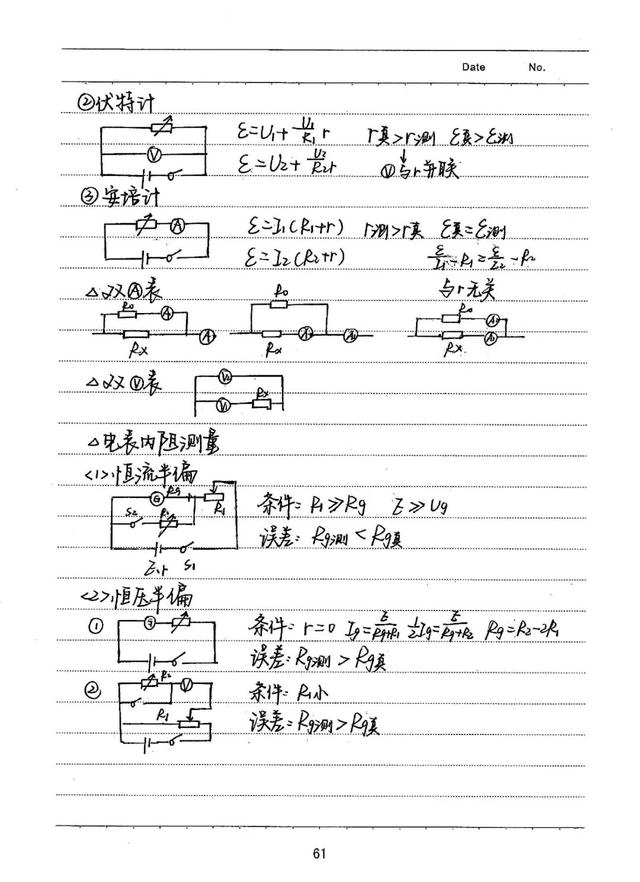 Date No.
②伏特计
ε=U₁+U₁/R₁ r r真>r测 ε真>ε测
ε=U₂+U₂/R₂ r Ⓥ与r并联
V
③安培计
A
ε=I₁(R₁+r) r测>r真 ε真=ε测
ε=I₂(R₂+r) ε/I₁-R₁=ε/I₂-R₂
△双Ⓐ表 与r无关
R₀ A R₀ R₀ A₂
Rx A Rx A₂ A₁ Rx A₁
△双Ⓥ表
V₂
V₁ Rx
△电表内阻测量
<1>恒流半偏
G Rg R₁
S₂ R₂
E.r S₁
条件: R₁≫Rg E≫Ug
误差: Rg测<Rg真
<2>恒压半偏
① G
条件: r=0 Ig=E/Rg+R₁ ½Ig=E/Rg+R₂ Rg=R₂-2R₁
误差: Rg测>Rg真
② R₂ V
R₁
条件: R₁小
误差: Rg测>Rg真
61